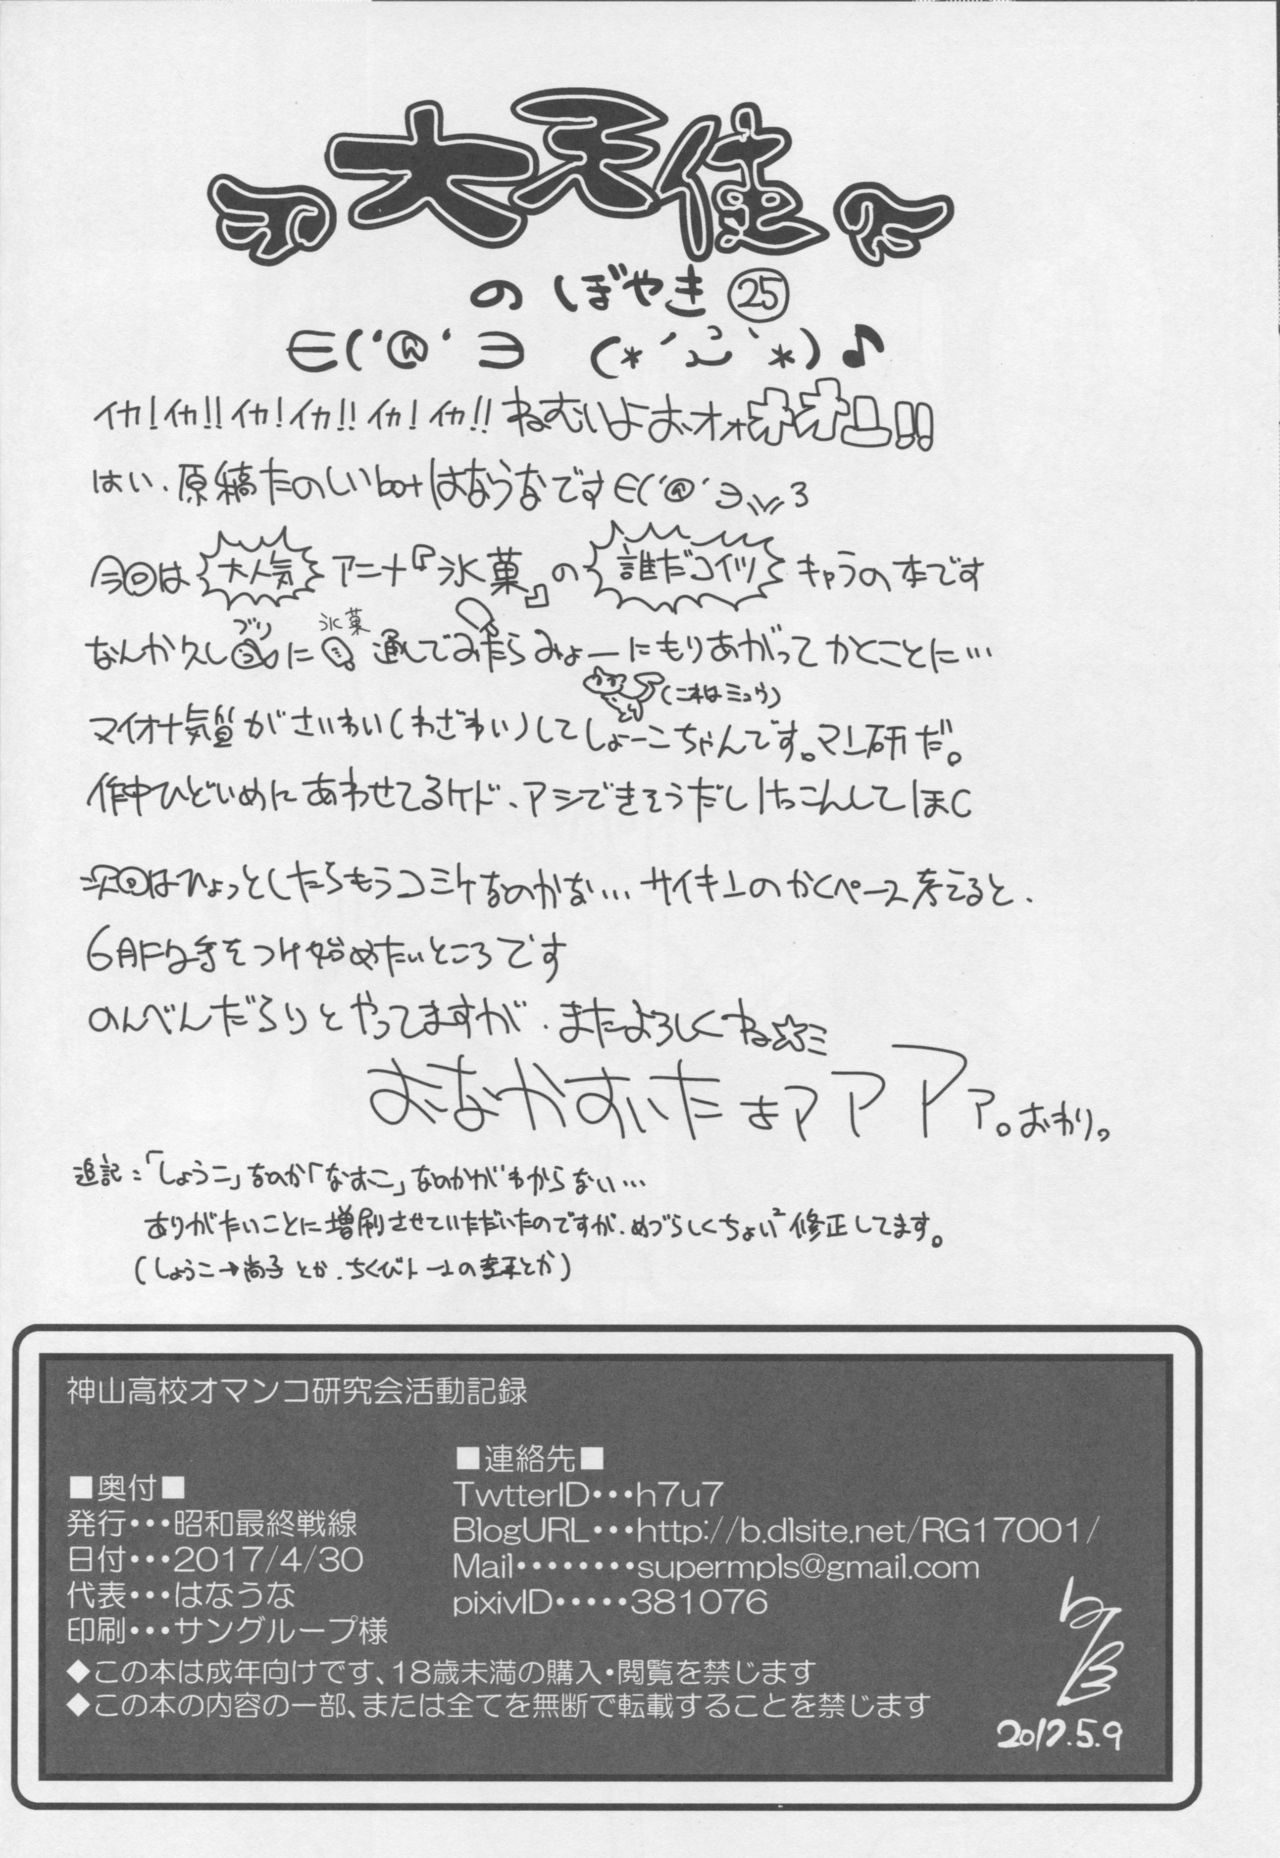 大天使
のぼやき㉕
∈('@'∋ (*´`*)♪
イカ!イカ!!イカ!イカ!!イカ!イカ!!ねむいよおォォオオ!!
はい、原稿たのしいbotはなうなです∈('@'∋ 3
今回は大人気アニメ『氷菓』の誰だコイツキャラの本です
なんか久しブリに氷菓通してみたらみょーにもりあがってかくことに…
マイオナ気質がさいわい(わざわい)してしょーこちゃんです。マン研だ。
(これはミュウ)
作中ひどいめにあわせてるケド、アシできそうだしけっこんしてほC
次回はひょっとしたらもうコミケなのかな…サイキンのかくペース考えると、
6月F2手をつけ始めたいところです
のんべんだらりとやってますが、またよろしくね☆ミ
おなかすいたよアアアア。おわり。
追記:「しょうこ」なのか「なおこ」なのかがわからない…
ありがたいことに増刷させていただいたのですが、めづらしくちょい²修正してます。
(しょうこ→尚子とか、ちくびトーンの とか)
神山高校オマンコ研究会活動記録
■奥付■
発行・・・昭和最終戦線
日付・・・2017/4/30
代表・・・はなうな
印刷・・・サングループ様
■連絡先■
TwtterID・・・h7u7
BlogURL・・・http://b.dlsite.net/RG17001/
Mail・・・・・・・・supermpls@gmail.com
pixivID・・・・・381076
◆この本は成年向けです、18歳未満の購入・閲覧を禁じます
◆この本の内容の一部、または全てを無断で転載することを禁じます
2017.5.9